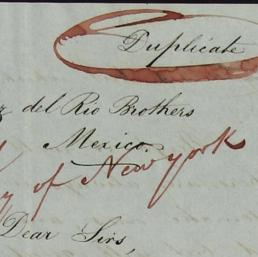 Duplicate
del Rio Brothers
Mexico.
of New york
Dear Sirs,